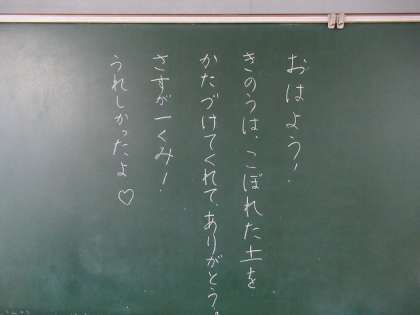 おはよう！
きのうは、こぼれた土を
かたづけてくれて、ありがとう。
さすが一くみ！
うれしかったよ♡